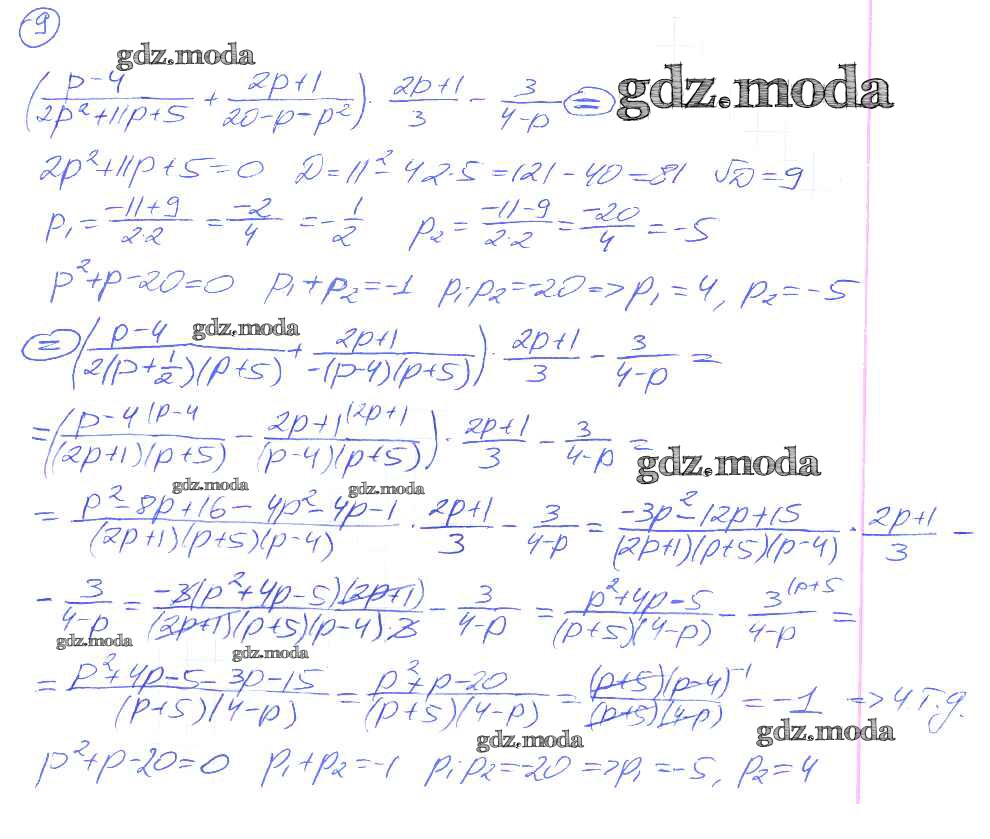 9
gdz.moda
((p-4)/(2p²+11p+5) + (2p+1)/(20-p-p²)) · (2p+1)/3 - 3/(4-p) =
gdz.moda
2p²+11p+5=0 D=11²-42·5=121-40=81 √D=9
p₁=(-11+9)/(2·2)=(-2)/4=-1/2 p₂=(-11-9)/(2·2)=(-20)/4=-5
p²+p-20=0 p₁+p₂=-1 p₁·p₂=-20=>p₁=4, p₂=-5
gdz.moda
= ((p-4)/(2(p+1/2)(p+5)) + (2p+1)/(-(p-4)(p+5))) · (2p+1)/3 - 3/(4-p) =
= ((p-4 (p-4)/((2p+1)(p+5)) - (2p+1 (2p+1)/((p-4)(p+5))) · (2p+1)/3 - 3/(4-p) =
gdz.moda
gdz.moda gdz.moda
= (p²-8p+16-4p²-4p-1)/((2p+1)(p+5)(p-4)) · (2p+1)/3 - 3/(4-p) = (-3p²-12p+15)/((2p+1)(p+5)(p-4)) · (2p+1)/3 -
- 3/(4-p) = (-3(p²+4p-5)(2p+1))/((2p+1)(p+5)(p-4)·3) - 3/(4-p) = (p²+4p-5)/((p+5)(4-p)) - (3 (p+5)/(4-p) =
gdz.moda
gdz.moda
= (p²+4p-5-3p-15)/((p+5)(4-p)) = (p²+p-20)/((p+5)(4-p)) = ((p+5)(p-4)⁻¹)/((p+5)(4-p)) = -1 => ч.т.д.
gdz.moda
gdz.moda
p²+p-20=0 p₁+p₂=-1 p₁·p₂=-20=>p₁=-5, p₂=4